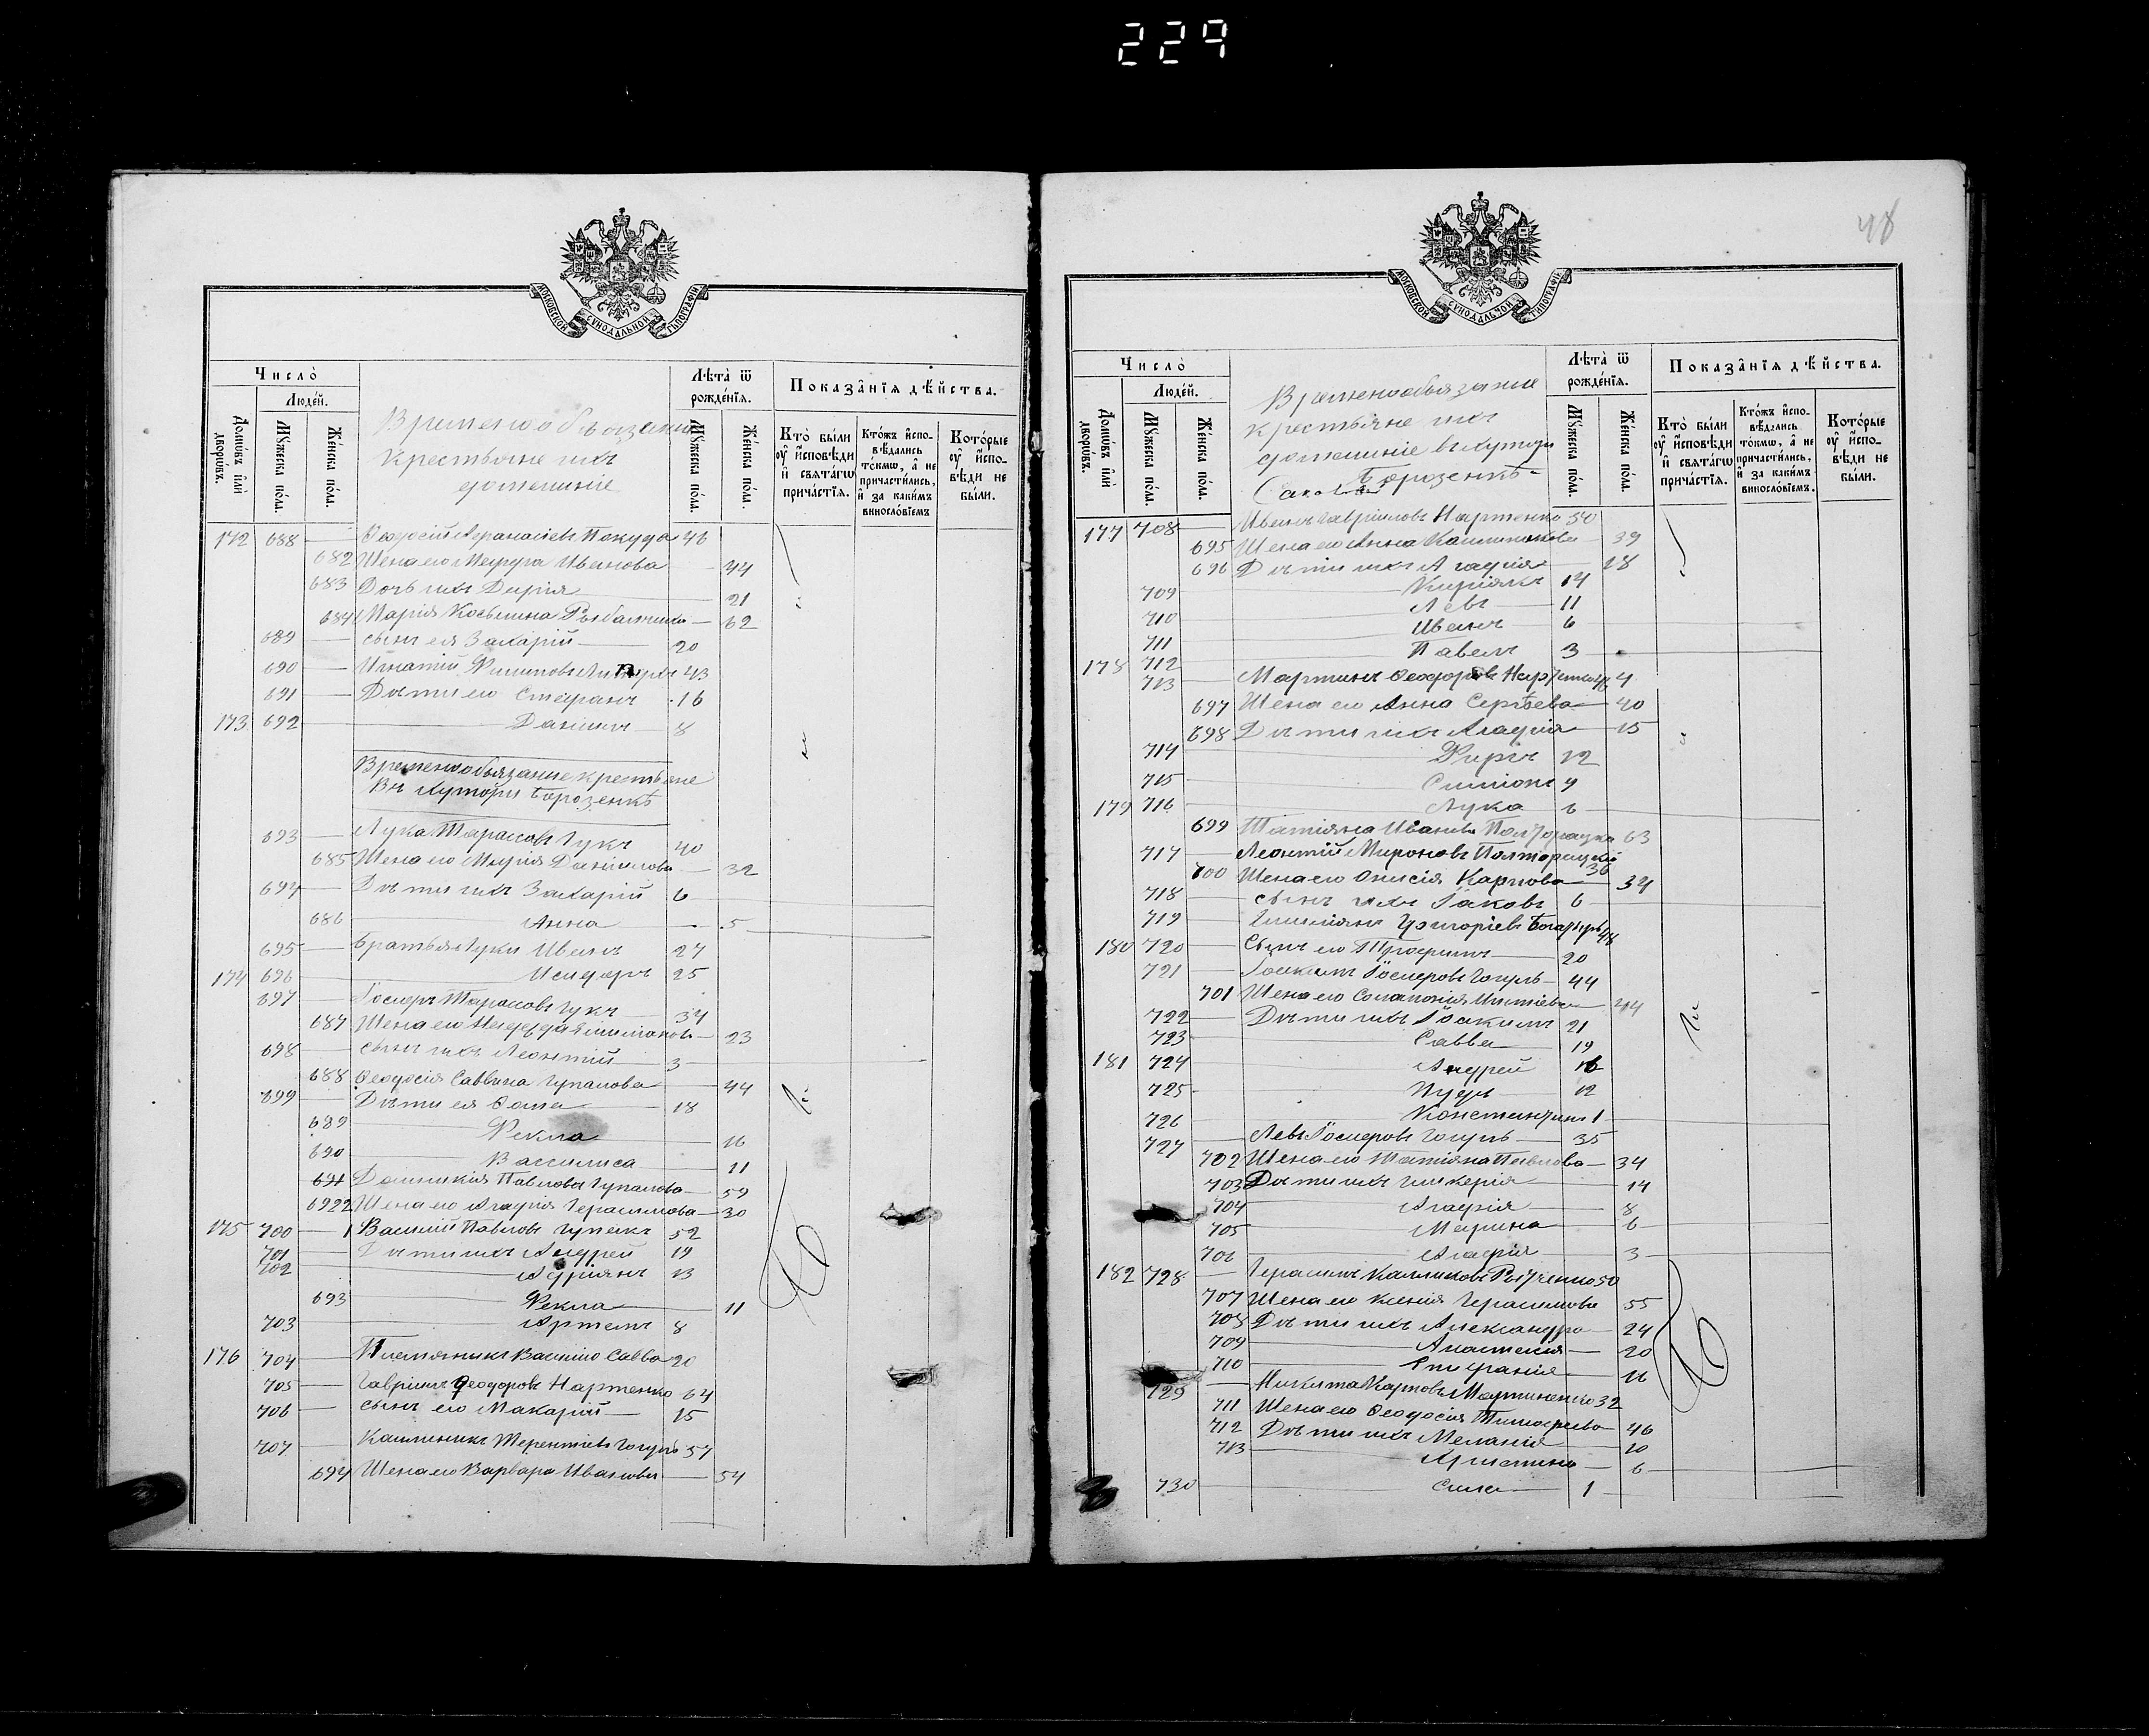 229
48
МОСКОВСКОЙ СѴНОДАЛЬНОЙ ТѴПОГРАФІИ
Число̀
Людéй.
Домѡ́въ и҆лѝ дворѡ́въ.
Мꙋ́жеска по́ла.
Же́нска по́ла.
Временнообязании
крестьяне ихъ
домашніе
Лѣта̀ ѿ рожде́нїѧ.
Мꙋ́жеска по́ла.
Же́нска по́ла.
Показа̂нїѧ дѣ́йства.
Кто̀ бы́ли ᲂу҆ и҆сповѣ́ди и҆ свѧта́гѡ прича́стїѧ.
Кто́жъ и҆спо- вѣ́дались то́кмѡ, а҆ не причасти́лись, и҆ за каки́мъ винословїемъ
Кото́рые ᲂу҆ и҆спо- вѣ́ди не бы́ли.
172 688 Ѳеодосій Аѳанасіевъ Покуда 46
682 Жена его Марѳа Иванова 44
683 Дочь ихъ Дарія 21
684 Марія Косьмина 62
689 сынъ ея Захарій 20
690 Игнатій Филиповъ 43
691 Дѣти его Стефанъ 16
173 692 Даніилъ 8
Временнообязание крестьяне
Въ Хутори Борозенкѣ
693 Лука Тарасовъ Гукъ 40
685 Жена его Марія Даніилова 32
694 Дѣти ихъ Захарій 6
686 Анна 5
695 Братья Луки Иванъ 27
174 696 Исидоръ 25
697 Іосифъ Тарасовъ Гукъ 34
687 Жена его Надежда 23
698 сынъ ихъ Леонтій 3
688 Ѳеодосія Саввина Чупакова 44
699 Дѣти ея Ѳома 18
689 Фекла 16
690 Василиса 11
691 Домникія Павлова Чупакова 59
692 Жена его Агафія Герасимова 30
175 700 Василій Павловъ Чупакъ 52
701 Дѣти ихъ Андрей 19
702 Адріянъ 13
693 Фекла 11
703 Артемъ 8
176 704 Племяникъ Василію Савва 20
705 Гавріилъ Ѳеодоровъ Нартенко 64
706 сынъ его Макарій 15
707 Калиникъ Терентіевъ Гогуль 57
694 Жена его Варвара Иванова 54
МОСКОВСКОЙ СѴНОДАЛЬНОЙ ТѴПОГРАФІИ
Число̀
Людéй.
Домѡ́въ и҆лѝ дворѡ́въ.
Мꙋ́жеска по́ла.
Же́нска по́ла.
Временообязание
крестьяне ихъ
домашніе въ Хутори
Борозенкѣ
Лѣта̀ ѿ рожде́нїѧ.
Мꙋ́жеска по́ла.
Же́нска по́ла.
Показа̂нїѧ дѣ́йства.
Кто̀ бы́ли ᲂу҆ и҆сповѣ́ди и҆ свѧта́гѡ прича́стїѧ.
Кто́жъ и҆спо- вѣ́дались то́кмѡ, а҆ не причасти́лись, и҆ за каки́мъ винословїемъ.
Кото́рые ᲂу҆ и҆спо- вѣ́ди не бы́ли.
177 708 Иванъ Гавріиловъ Нартенко 50
695 Жена его Анна Калиникова 39
696 Дѣти ихъ Агафія 18
709 Киріякъ 14
710 Левъ 11
711 Иванъ 6
178 712 Павелъ 3
713 Мартинъ Ѳеодоровъ
697 Жена его Анна Сергѣева 40
698 Дѣти ихъ Агафія 15
714 Фирсъ 12
715 Симіонъ 9
179 716 Лука 6
699 Татіяна Иванова Полторацка 63
717 Леонтій Мироновъ Полторацкій 36
700 Жена его Онисія Карпова 34
718 сынъ ихъ Іаковъ 6
719 Григоріевъ Богатырь 48
180 720 Сынъ его Трофимъ 20
721 Іоакимъ Іосифовъ Гогуль 44
701 Жена его Соломонія 44
722 Дѣти ихъ Іоакимъ 21
723 Савва 19
181 724 Андрей 16
725 Пудъ 12
726 Константинъ 1
727 Левъ Іосифовъ Гогуль 35
702 Жена его Татіяна Павлова 34
703 Дѣти ихъ Гликерія 14
704 Агафія 8
705 Марина 6
706 Агафія 3
182 728 Герасимъ Калиниковъ 50
707 Жена его Ксенія Герасимова 55
708 Дѣти ихъ Александра 24
709 Анастасія 20
710 Епифанія 16
729 Никита Карповъ Мартиненко 32
711 Жена его Ѳеодосія Тимофеева 46
712 Дѣти ихъ Меланія 10
713 Христина 6
730 Сила 1